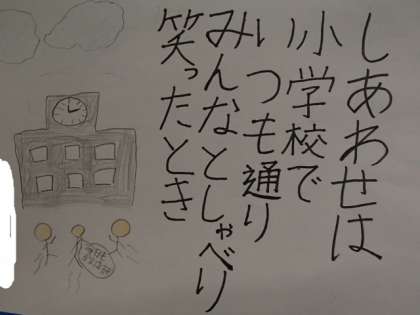 しあわせは
小学校で
いつも通り
みんなとしゃべり
笑ったとき